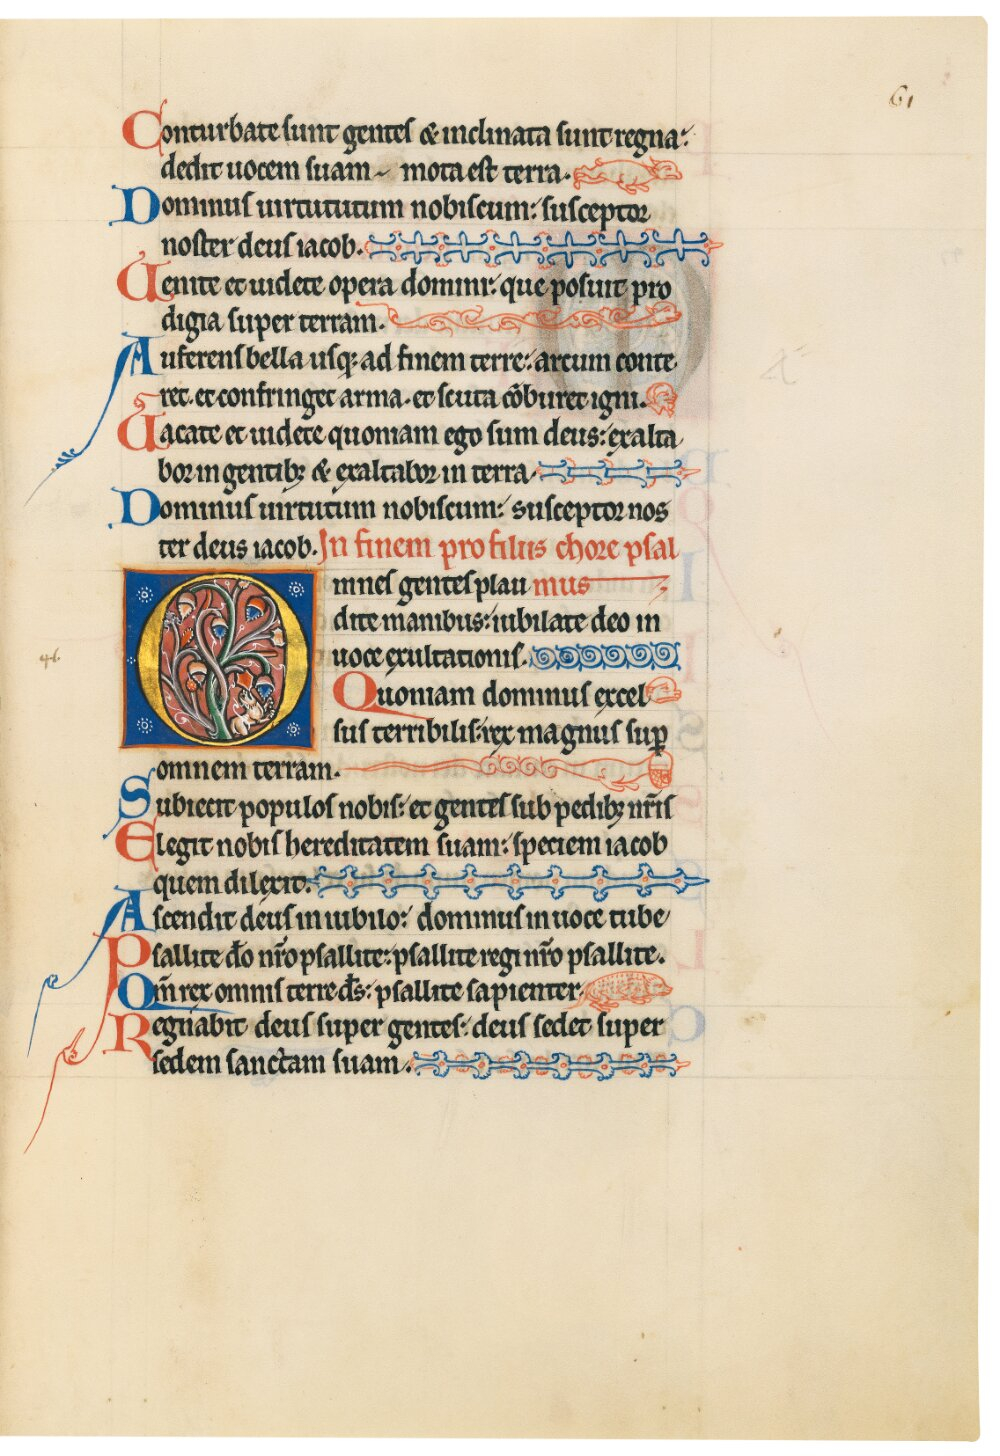 61
Conturbate sunt gentes & inclinata sunt regna:
dedit uocem suam mota est terra.
Dominus uirtututum nobiscum: susceptor
noster deus iacob.
Uenite et uidete opera domini: que posuit pro
digia super terram.
Auferens bella usq; ad finem terre: arcum conte
ret. et confringet arma. et scuta cōburet igni.
Uacate et uidete quoniam ego sum deus: exalta
bor in gentibꝫ & exaltabor in terra.
Dominus uirtutum nobiscum: susceptor nos
ter deus iacob. In finem pro filiis chore psal
Omnes gentes plau mus
dite manibus: iubilate deo in
46
uoce exultationis.
Quoniam dominus excel
sus terribilis: rex magnus suꝑ
omnem terram.
Subiecit populos nobis: et gentes sub pedibꝫ nr̄is
Elegit nobis hereditatem suam: speciem iacob
quem dilexit.
Ascendit deus in iubilo: dominus in uoce tube
Psallite dō nr̄o psallite: psallite regi nr̄o psallite.
Qm̄ rex omnis terre ds̄: psallite sapienter.
Regnabit deus super gentes: deus sedet super
sedem sanctam suam.